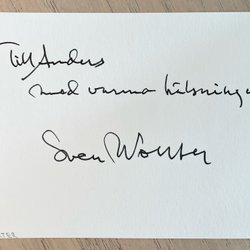 Till Anders
med varma hälsningar
Sven Wollter